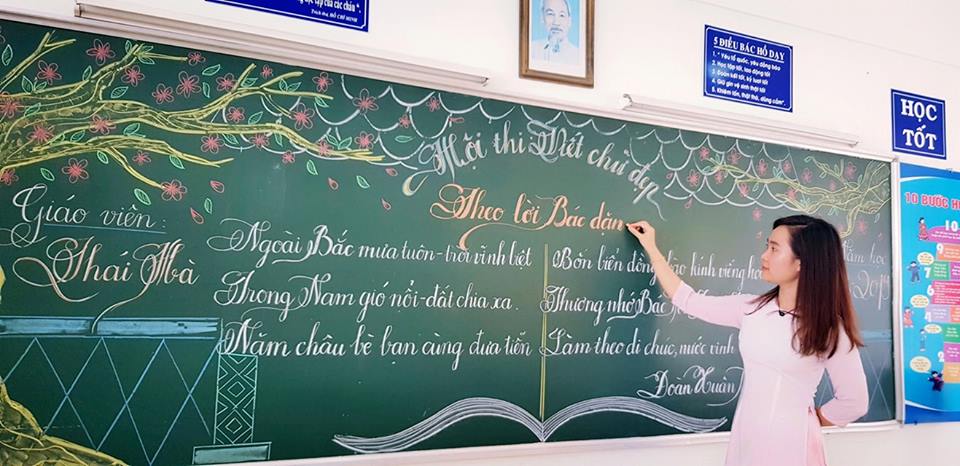 ng học tập của các cháu".
Trích thư, HỒ CHÍ MINH
5 ĐIỀU BÁC HỒ DẠY
1. "Yêu tổ quốc, yêu đồng bào
2. Học tập tốt, lao động tốt
3. Đoàn kết tốt, kỷ luật tốt
4. Giữ gìn vệ sinh thật tốt
5. Khiêm tốn, thật thà, dũng cảm".
HỌC
TỐT
10 BƯỚC
Hội thi Viết chữ đẹp
Theo lời Bác dặn
Giáo viên:
Thái Hà
Năm học
Ngoài Bắc mưa tuôn - trời vĩnh biệt
Trong Nam gió nổi - đất chia xa.
Năm châu bè bạn cùng đưa tiễn
Bốn biển đồng bào kính viếng
Thương nhớ Bác
Làm theo di chúc, nước vinh
Đoàn Xuân